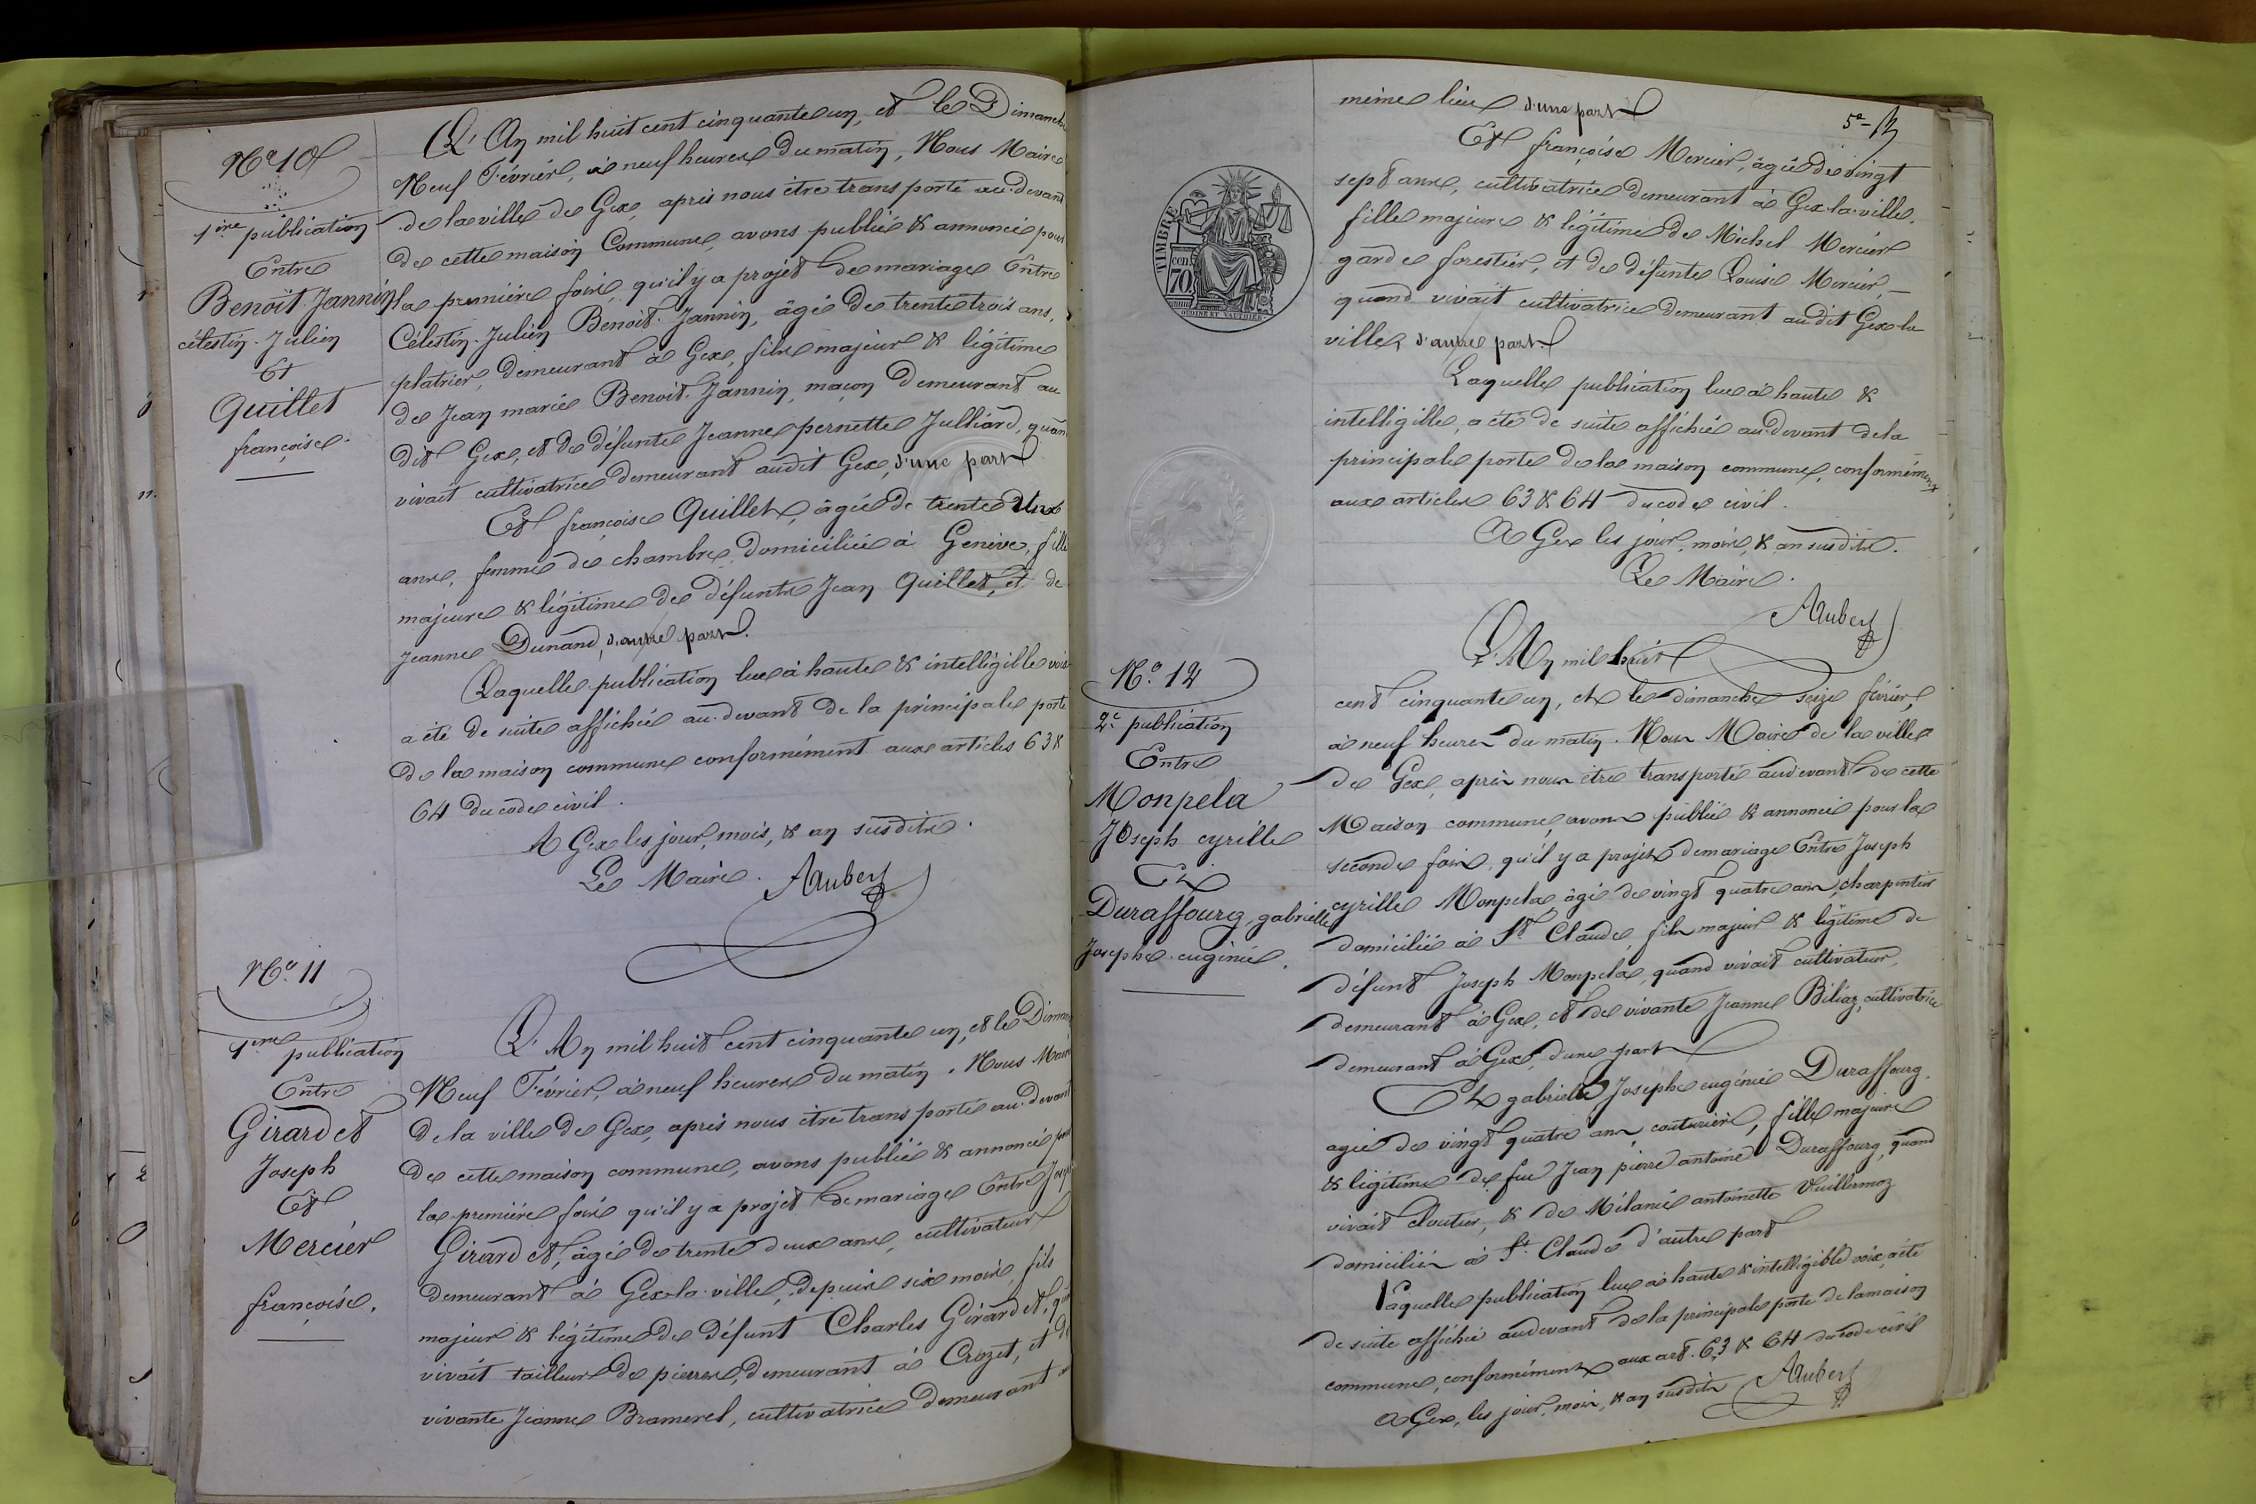 N.o 10
1ère publication
Entre
Benoit-Jannin
célestin-Julien
Et
Quillet
françoise.
L'An mil huit cent cinquante un, et le Dimanche
Neuf Février, à neuf heures du matin, Nous Maire
de la ville de Gex, après nous être transporté au-devant
de cette maison Commune, avons publié & annoncé pour
la première fois, qu'il y a projet de mariage Entre
Célestin-Julien Benoit-Jannin, âgé de trente trois ans,
platrier, demeurant à Gex, fils majeur & légitime
de Jean marie Benoit-Jannin, maçon demeurant au
dit Gex, et de défunte Jeanne pernette Julliard, quand
vivait cultivatrice demeurant audit Gex, d'une part
Et françoise Quillet, âgée de trente deux
ans, femme de chambre, domiciliée à Genève, fille
majeure & légitime de défunts Jean Quillet, et de
Jeanne Dunand, d'autre part.
Laquelle publication lue à haute & intelligible voix
a été de suite affichée au-devant de la principale porte
de la maison commune conformément aux articles 63 &
64 du code civil.
A Gex les jour, mois, & an susdits.
Le Maire. Aubert
N.o 11
1ère publication
Entre
Girardet
Joseph
Et
Mercier
françoise.
L'An mil huit cent cinquante un, et le Diman
Neuf Février, à neuf heures du matin. Nous Maire
de la ville de Gex, après nous être transporté au-devant
de cette maison commune, avons publié & annoncé pour
la première fois qu'il y a projet de mariage Entre Joseph
Girardet, âgé de trente deux ans, cultivateur
demeurant à Gex-la-ville, depuis six mois, fils
majeur & légitime de défunt Charles Girardet, qu
vivait tailleur de pierres, demeurant à Crozet, et de
vivante Jeanne Bramerel, cultivatrice demeurant a
5e
même lieu d'une part
Et françoise Mercier, âgée de vingt
sept ans, cultivatrice demeurant à Gex-la-ville,
fille majeure & légitime de Michel Mercier
garde forestier, et de défunte Louise Mercier,
quand vivait cultivatrice demeurant audit Gex la
ville, d'autre part.
Laquelle publication lue à haute &
intelligille, a été de suite affichée au-devant de la
principale porte de la maison commune, conformément
aux articles 63 & 64 du code civil.
A Gex les jour, mois, & an susdits.
Le Maire.
Aubert
TIMBRE
70 cen
OUDINE ET VAUTHIER
N.o 12
2e publication
Entre
Monpela
Joseph cyrille
Et
Duraffourg, gabrielle
Josephe-eugénie.
L'An mil huit
cent cinquante un, et le dimanche seize février,
à neuf heures du matin. Nous Maire de la ville
de Gex, après nous être transporté audevant de cette
Maison commune, avons publié & annoncé pour la
seconde fois, qu'il y a projet de mariage Entre Joseph
cyrille Monpela, âgé de vingt quatre ans, charpentier
domicilié à St Claude, fils majeur & légitime de
défunt Joseph Monpela, quand vivait cultivateur,
demeurant à Gex, et de vivante Jeanne Biliaz, cultivatrice
demeurant à Gex, d'une part
Et gabrielle Josephe eugénie Duraffourg.
agée de vingt quatre ans, couturière, fille majeure
& légitime de feu Jean pierre antoine Duraffourg, quand
vivait cloutier, & de Mélanie antoinette Vuillermoz
domiciliés à St Claude d'autre part
Laquelle publication lue à haute & intelligible voix, a été
de suite affichée audevant de la principale porte de la maison
commune, conformément aux art. 63 & 64 du code civil
A Gex, les jour, mois, & an susdits Aubert